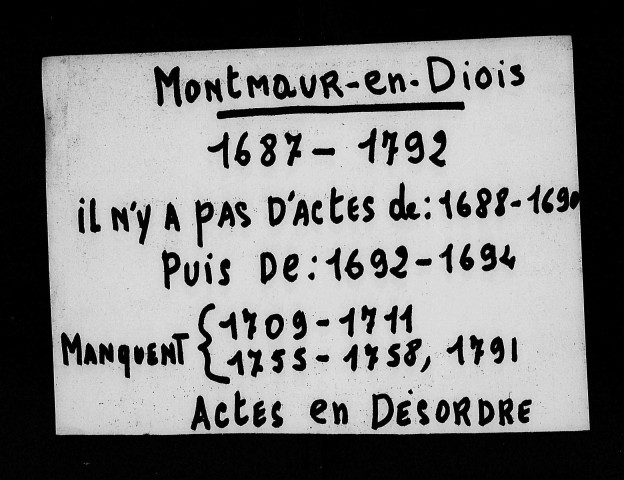 Montmaur-en-Diois
1687 - 1792
il n'y a pas d'actes de: 1688-1690
Puis de: 1692-1694
Manquent { 1709-1711
1755-1758, 1791
Actes en Désordre